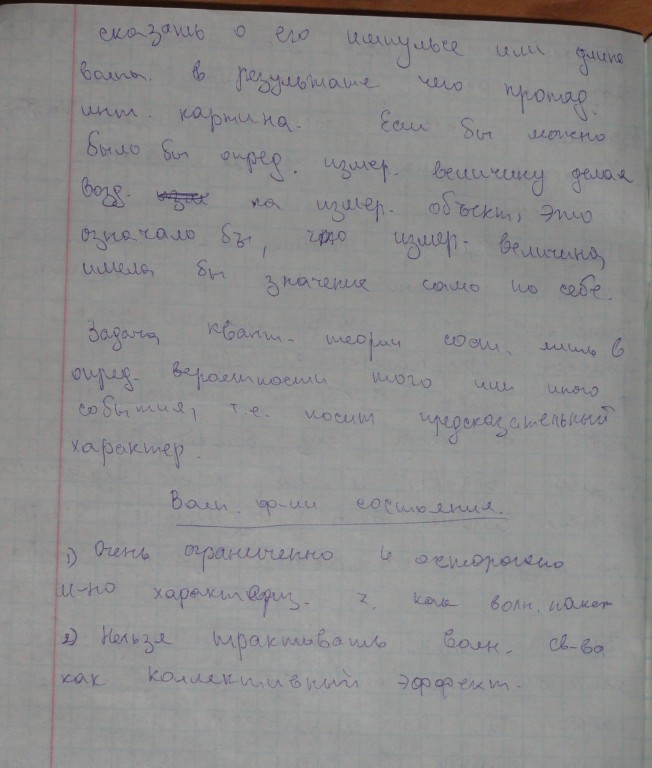 сказать о его импульсе или длине
волны. в результате чего пропад.
инт. картина. Если бы можно
было бы опред. измер. величину делая
возд. на измер. объект, это
означало бы, что измер. величина,
имела бы значение само по себе.
Задача квант. теории сост. лишь в
опред. вероятности того или иного
события, т.е. носит предсказательный
характер.
Волн. ф-ии состояния.
1) Очень ограниченно и осторожно
м-но характериз. ч. как волн. пакет
2) Нельзя трактовать волн. св-ва
как коллективный эффект.